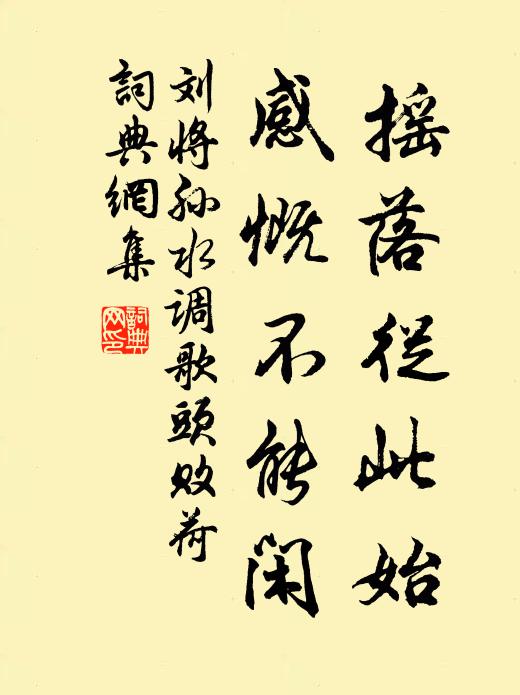 摇落從此始
感慨不能閑
刘将孙水调歌頭败荷
詞典網集
詞典
网印